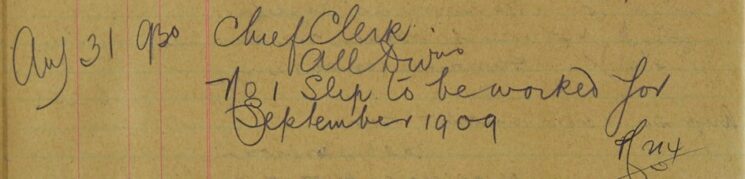 Aug 31 930 Chief Clerk
All Divns
No 1 Slip to be worked for
September 1909